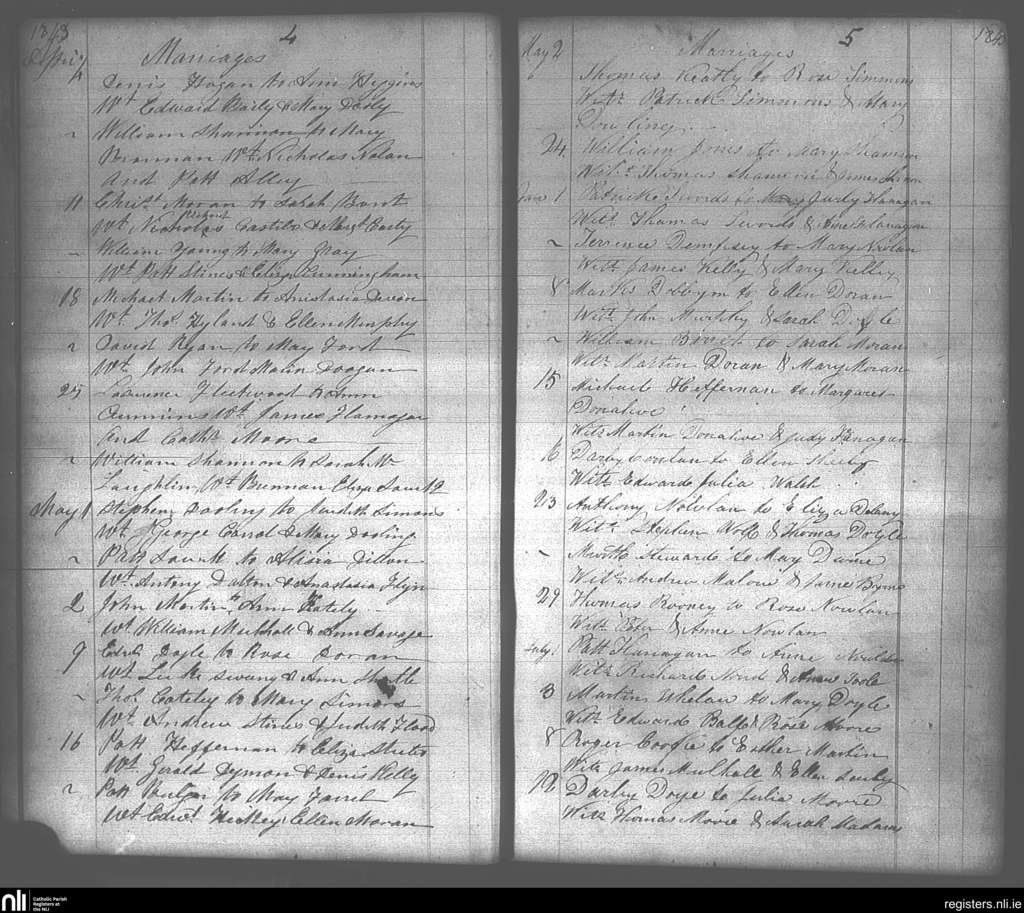 1843
4
Marriages
Denis Hogan to Ann Higgins
Wt Edward Baily & Mary Dooly
William Shannon to Mary
Brennan Wt Nicholas Nolan
and Patt Alley
11 Christ Moran to Sarah
Wt Nicholas Costilo & Margt Casty
William Young to Mary Gray
Wt Patt Stines & Eliza Cunningham
18 Michael Martin to Anistasia
Wt. Thos Hyland & Ellen Murphy
David Ryan to Mary Ford
Wt. John Ford Maria Doogan
25 Laurence Fleetwood to Ann
Cummins Wt. James Flanagan
and Cathr. Moore
William Shannon to Sarah Mc
Laughlin Wt Brennan Eliza
May 1 Stephen Dooling to Judith Simons
Wt George Carrol & Mary Dooling
Patt to Alisia Dillon
Wt. Antony Dalton & Anastasia Flyn
2 John Martin to Ann Kately
Wt William Mulhall & Ann Savage
9 Edwd Doyle to Rose Doran
Wt Luke & Ann
Thos Cateley to Mary Simons
Wt. Andrew Stines & Judith Flood
16 Patt Heffernan to Eliza
Wt. Gerald Dymon & Denis Kelly
Patt to Mary Farrel
Wt Edwd Hickey Ellen Moran
May 2
Marriages
5
1843
Thomas Keatly to Rose Simmons
Witz Patrick Simmons & Mary
Dowling
24 William Jones to Mary Shannon
Witz Thomas Shannon & James
June 1 Patrick Swords to Judy Flanagan
Witz Thomas Swords & Anne Flanagan
Terrence Dempsey to Mary Nowlan
Witz James Kelly & Mary Kelly
8 Marks Dobbyn to Ellen Doran
Witz John Murthy & Sarah Doyle
William to Sarah Moran
Witz Martin Doran & Mary Moran
15 Michael Heffernan to Margaret
Donahoe
Witz Martin Donahoe & Judy Flanagan
16 Darby Conlan to Ellen Sheehy
Witz Edward Julia Walsh
23 Anthony Nowlan to Eliza Delany
Witz Stephen Wolf & Thomas Doyle
to Mary Dunne
Witz Andrew Malone & Jane Byrne
29 Thomas Rooney to Rose Nowlan
Witz Peter & Anne Nowlan
July 1 Patt Flanagan to Anne
Witz Richard & Anne Toole
3 Martin Whelan to Mary Doyle
Witz Edward Ball & Rose Moore
8 Roger to Esther Martin
Witz James Mulhall & Ellen
12 Darby Doye to Julia Moore
Witz Thomas Moore & Sarah Madams
nli
Catholic Parish
Registers at
the NLI
registers.nli.ie